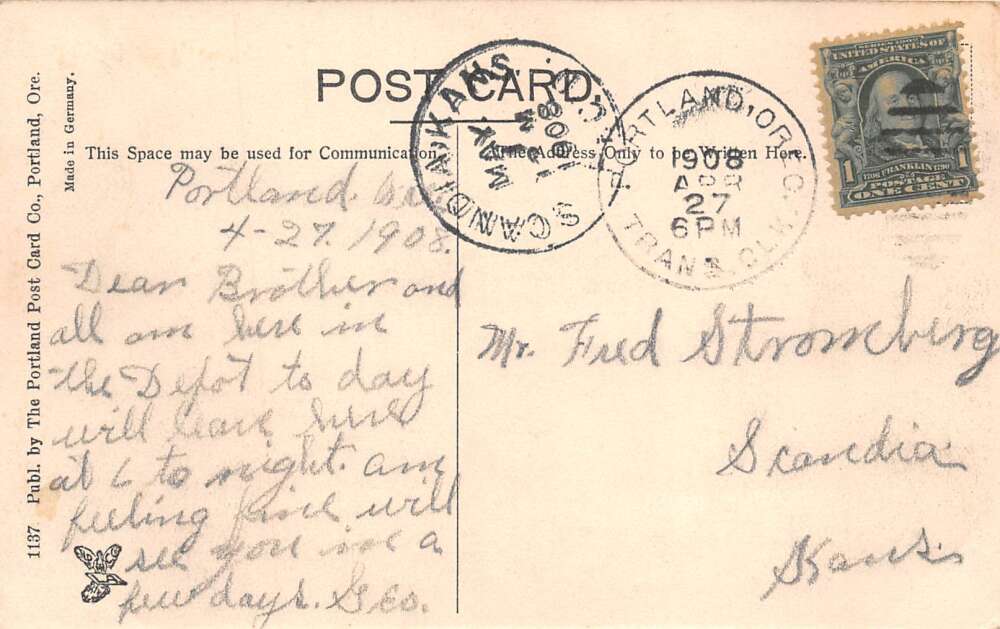 POST CARD
This Space may be used for Communication.
The Address Only to be Written Here.
1137 Publ. by The Portland Post Card Co., Portland, Ore.
Made in Germany.
SCANDIA, KANS.
MAY
1
M
1908
REC'D.
PORTLAND, OREG.
1908
APR
27
6PM
TRANS. CLK.
SERIES 1902
UNITED STATES OF
AMERICA
1 1
1706 FRANKLIN 1790
POSTAGE
ONE CENT
Portland. Ore
4-27. 1908.
Dear Brother and
all am here in
the Depot to day
will leave here
at 6 to night. am
feeling fine will
see you in a
few days. Geo.
Mr. Fred Stromberg
Scandia
Kans.